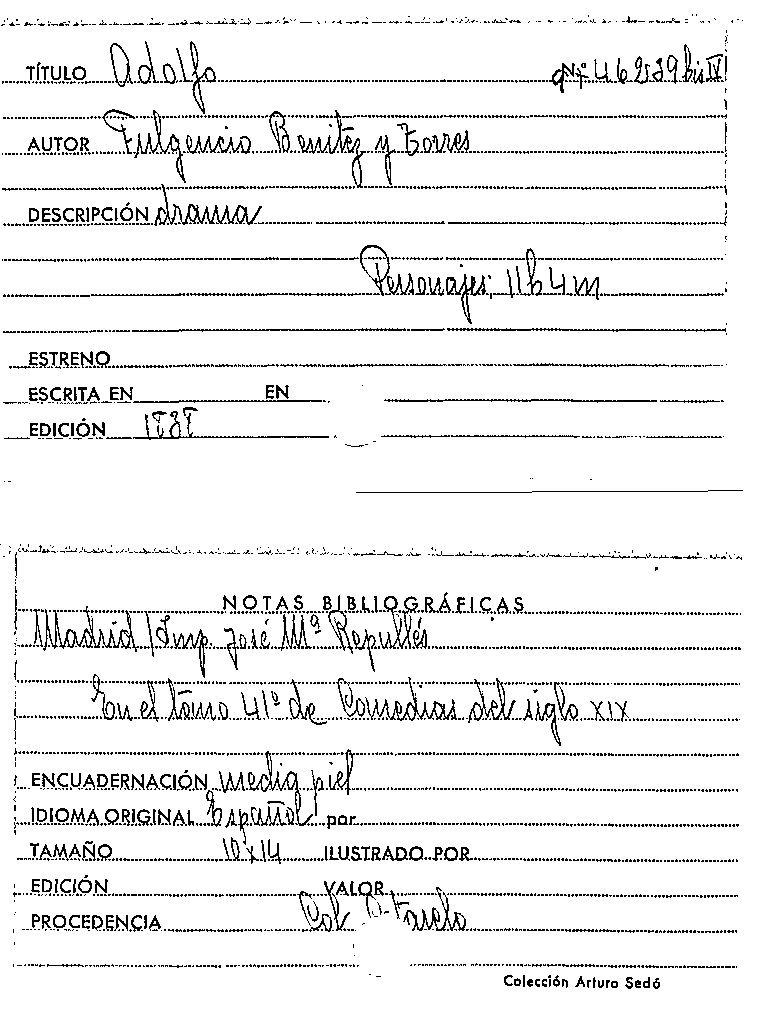 TÍTULO Adolfo 46239 bis IV
AUTOR Fulgencio Benitez y Torres
DESCRIPCIÓN drama
Personajes: 11h 4m
ESTRENO
ESCRITA EN EN
EDICIÓN 1838
NOTAS BIBLIOGRÁFICAS
Madrid/Imp. José Mª Repullés
En el tomo 41º de Comedias del siglo XIX
ENCUADERNACIÓN media piel
IDIOMA ORIGINAL Español por
TAMAÑO 10x14 ILUSTRADO POR
EDICIÓN VALOR
PROCEDENCIA Col.
Colección Arturo Sedó